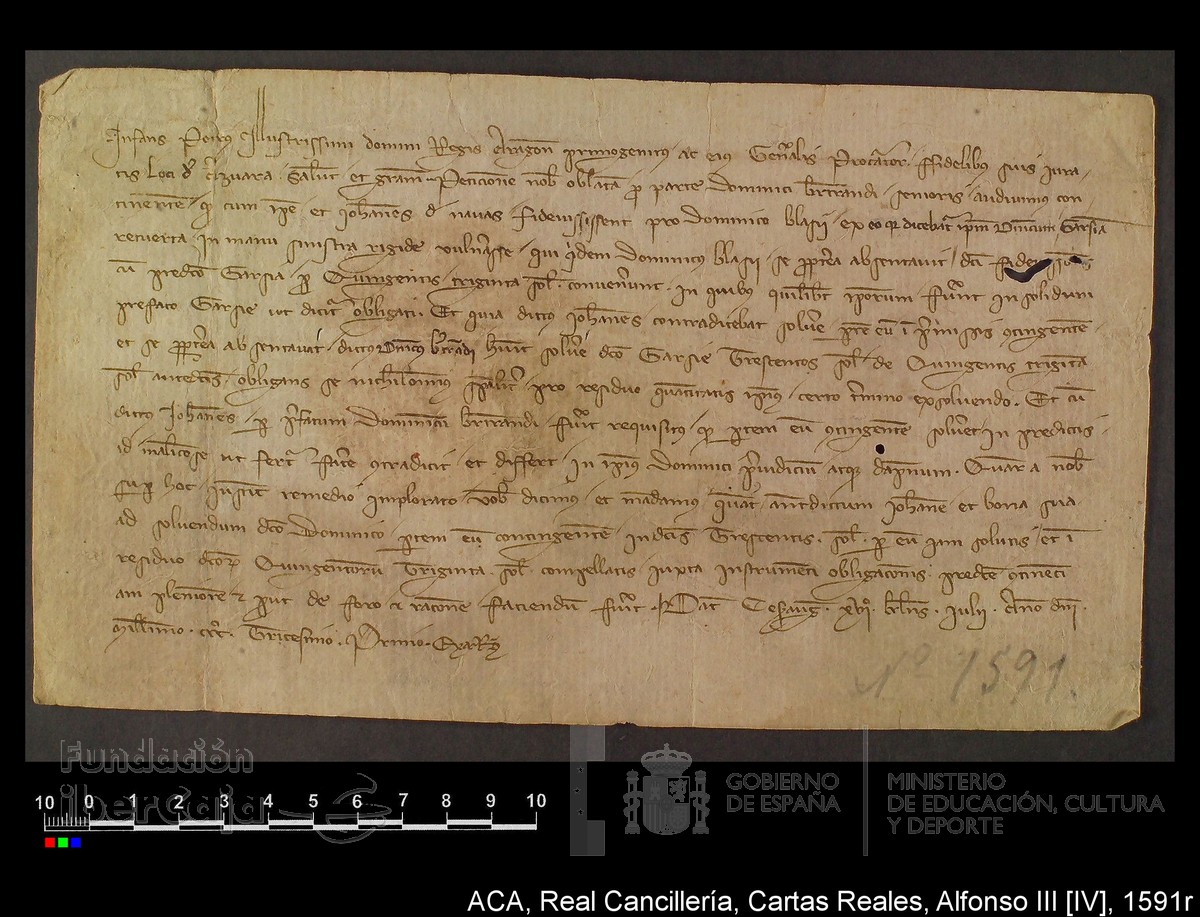 Infans Petrus Illustrissimi domini Regis Aragon primogenitus ac eius Gen'alis Procurator ffidelibus suis iura
tis Loci d' Salut et gram Peticione nob oblata p parte Dominici b'trandi senioris audivimus con
tinente q cum ipe et Joh'anes d navas fideiussissent pro dominico blasii ex eo q dicebat ipm Dnicum Garsia
recuerta in manu sinistra rigide vuln'asse qui q'dem dominicus blasii se p'pt'ea absentavit dci
cu predco Garsia p Quingentis triginta sol convenerunt in quibus quilibt iporum fu'nt in solidum
prefato Garsie ut dicit' obligati Et quia dictus Joh'anes contradicebat solu'e p'te eu i p'missis contingente
et se p'pt'ea absentavit dictus Dnicus b'trandi huit solu'e dco Garsie Trescentos sol de Quingentis triginta
sol antedcis obligans se nichilominus pro residuo quantitatis ipius certo t'mino exsolvendo Et cu
dictus Joh'anes p p'fatum Dominicu b'trandi fu'it requisitus q p'tem eu contingente solv'et in predictis
id maliciose ut fert' fac'e contradicit et differt in ipius Dominici p'iudicium atq dapnum Quare a nob
sup hoc iuris remedio implorato vob dicimus et madamus antedictum Joh'ane et bona sua
ad solvendum dco Dominico p'tem eu contingente in dcis Trescentis sol p eu iam solutis et i
residuo dcor Quingentoru Triginta sol compellatis iuxta instrumeti obligaconis predce contineti
am pleniore et put de foro et racone faciendu fu'it Dat Cesaraug xvi kl'ns Iulii Anno dni
Mill'imo ccc Tricesimo Primo
Nº 1591.
Fundación
ibercaja
GOBIERNO
DE ESPAÑA
MINISTERIO
DE EDUCACIÓN, CULTURA
Y DEPORTE
10 0 1 2 3 4 5 6 7 8 9 10
ACA, Real Cancillería, Cartas Reales, Alfonso III [IV], 1591r